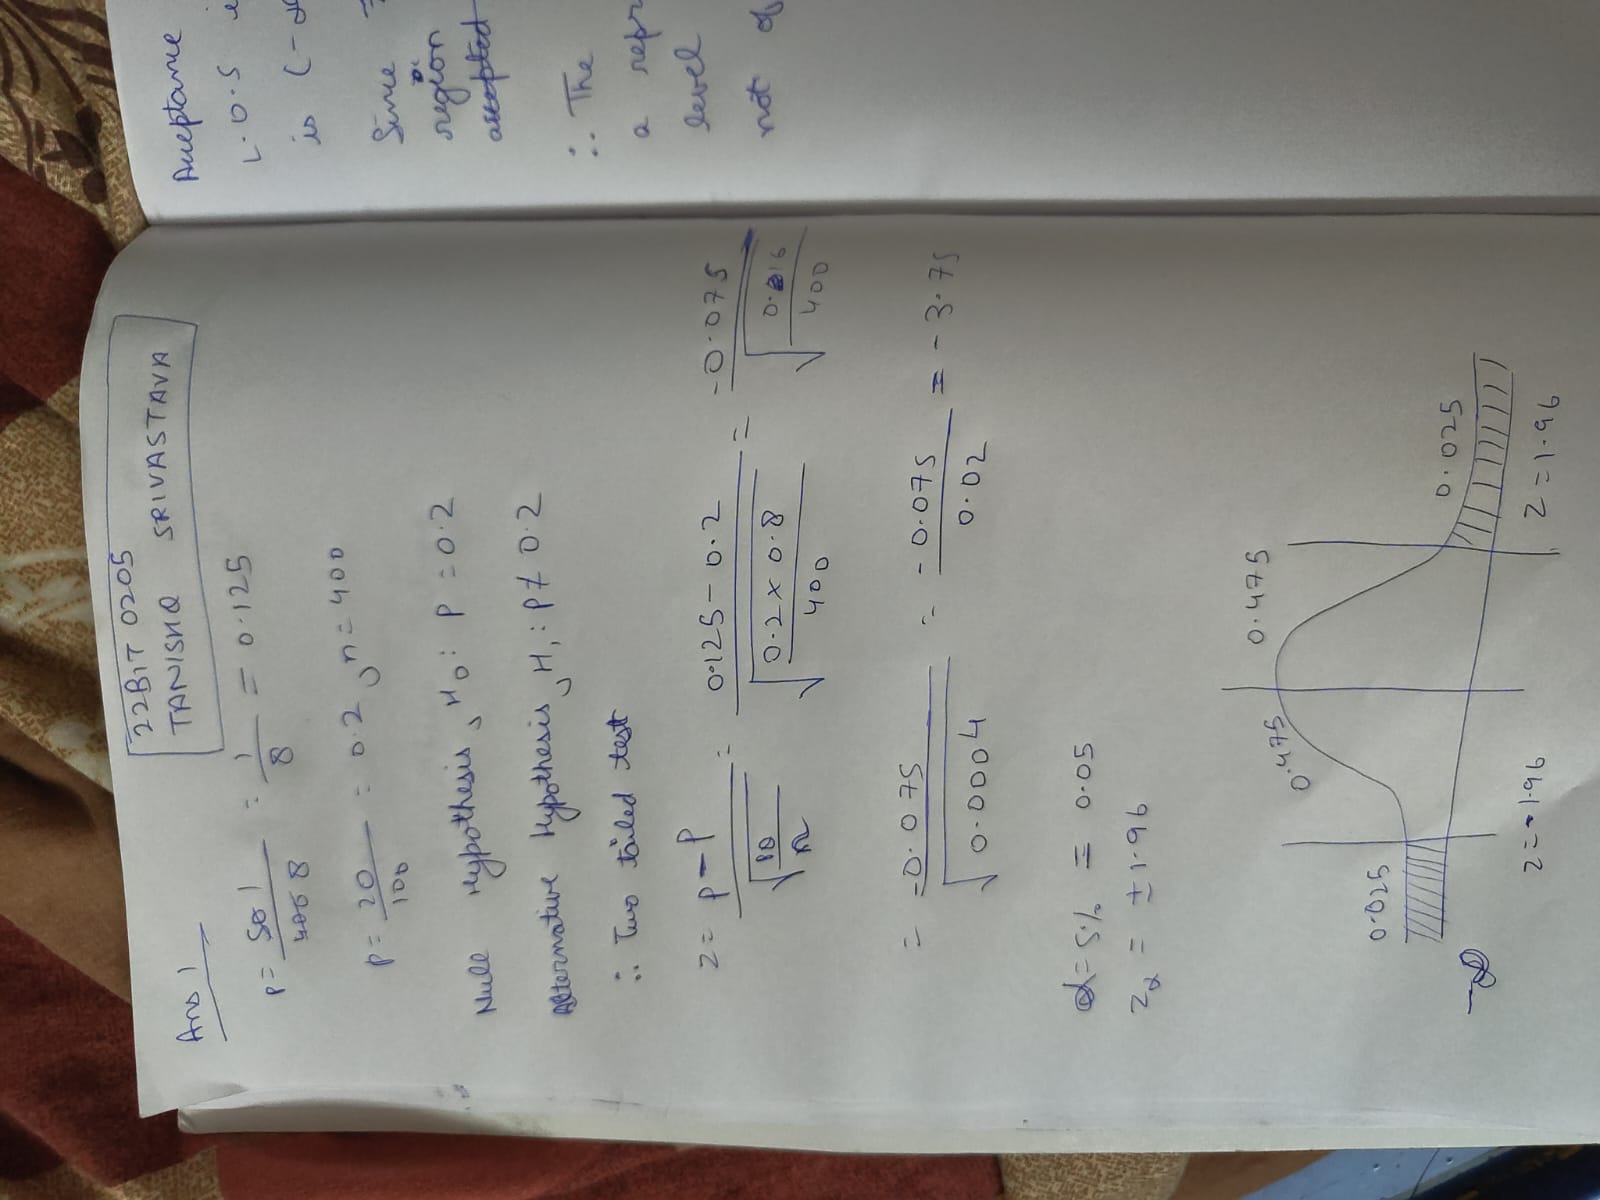 22BIT 0205
TANISHQ SRIVASTAVA
Ans 1
p = 50 1 / 400 8 = 1/8 = 0.125
P = 20/100 = 0.2, n = 400
Null Hypothesis, H0: P = 0.2
Alternative Hypothesis, H1: P ≠ 0.2
∴ Two tailed test
z = p - P / √(PQ/n) = 0.125 - 0.2 / √(0.2 x 0.8 / 400) = -0.075 / √(0.16 / 400)
= -0.075 / √0.0004 = -0.075 / 0.02 = -3.75
α = 5% = 0.05
zα = ±1.96
0.475 0.475
0.025
0.025
-∞
z = -1.96 z = 1.96
Acceptance
L.O.S
is (-
Since
region
accepted
∴ The
a repr
level
not of